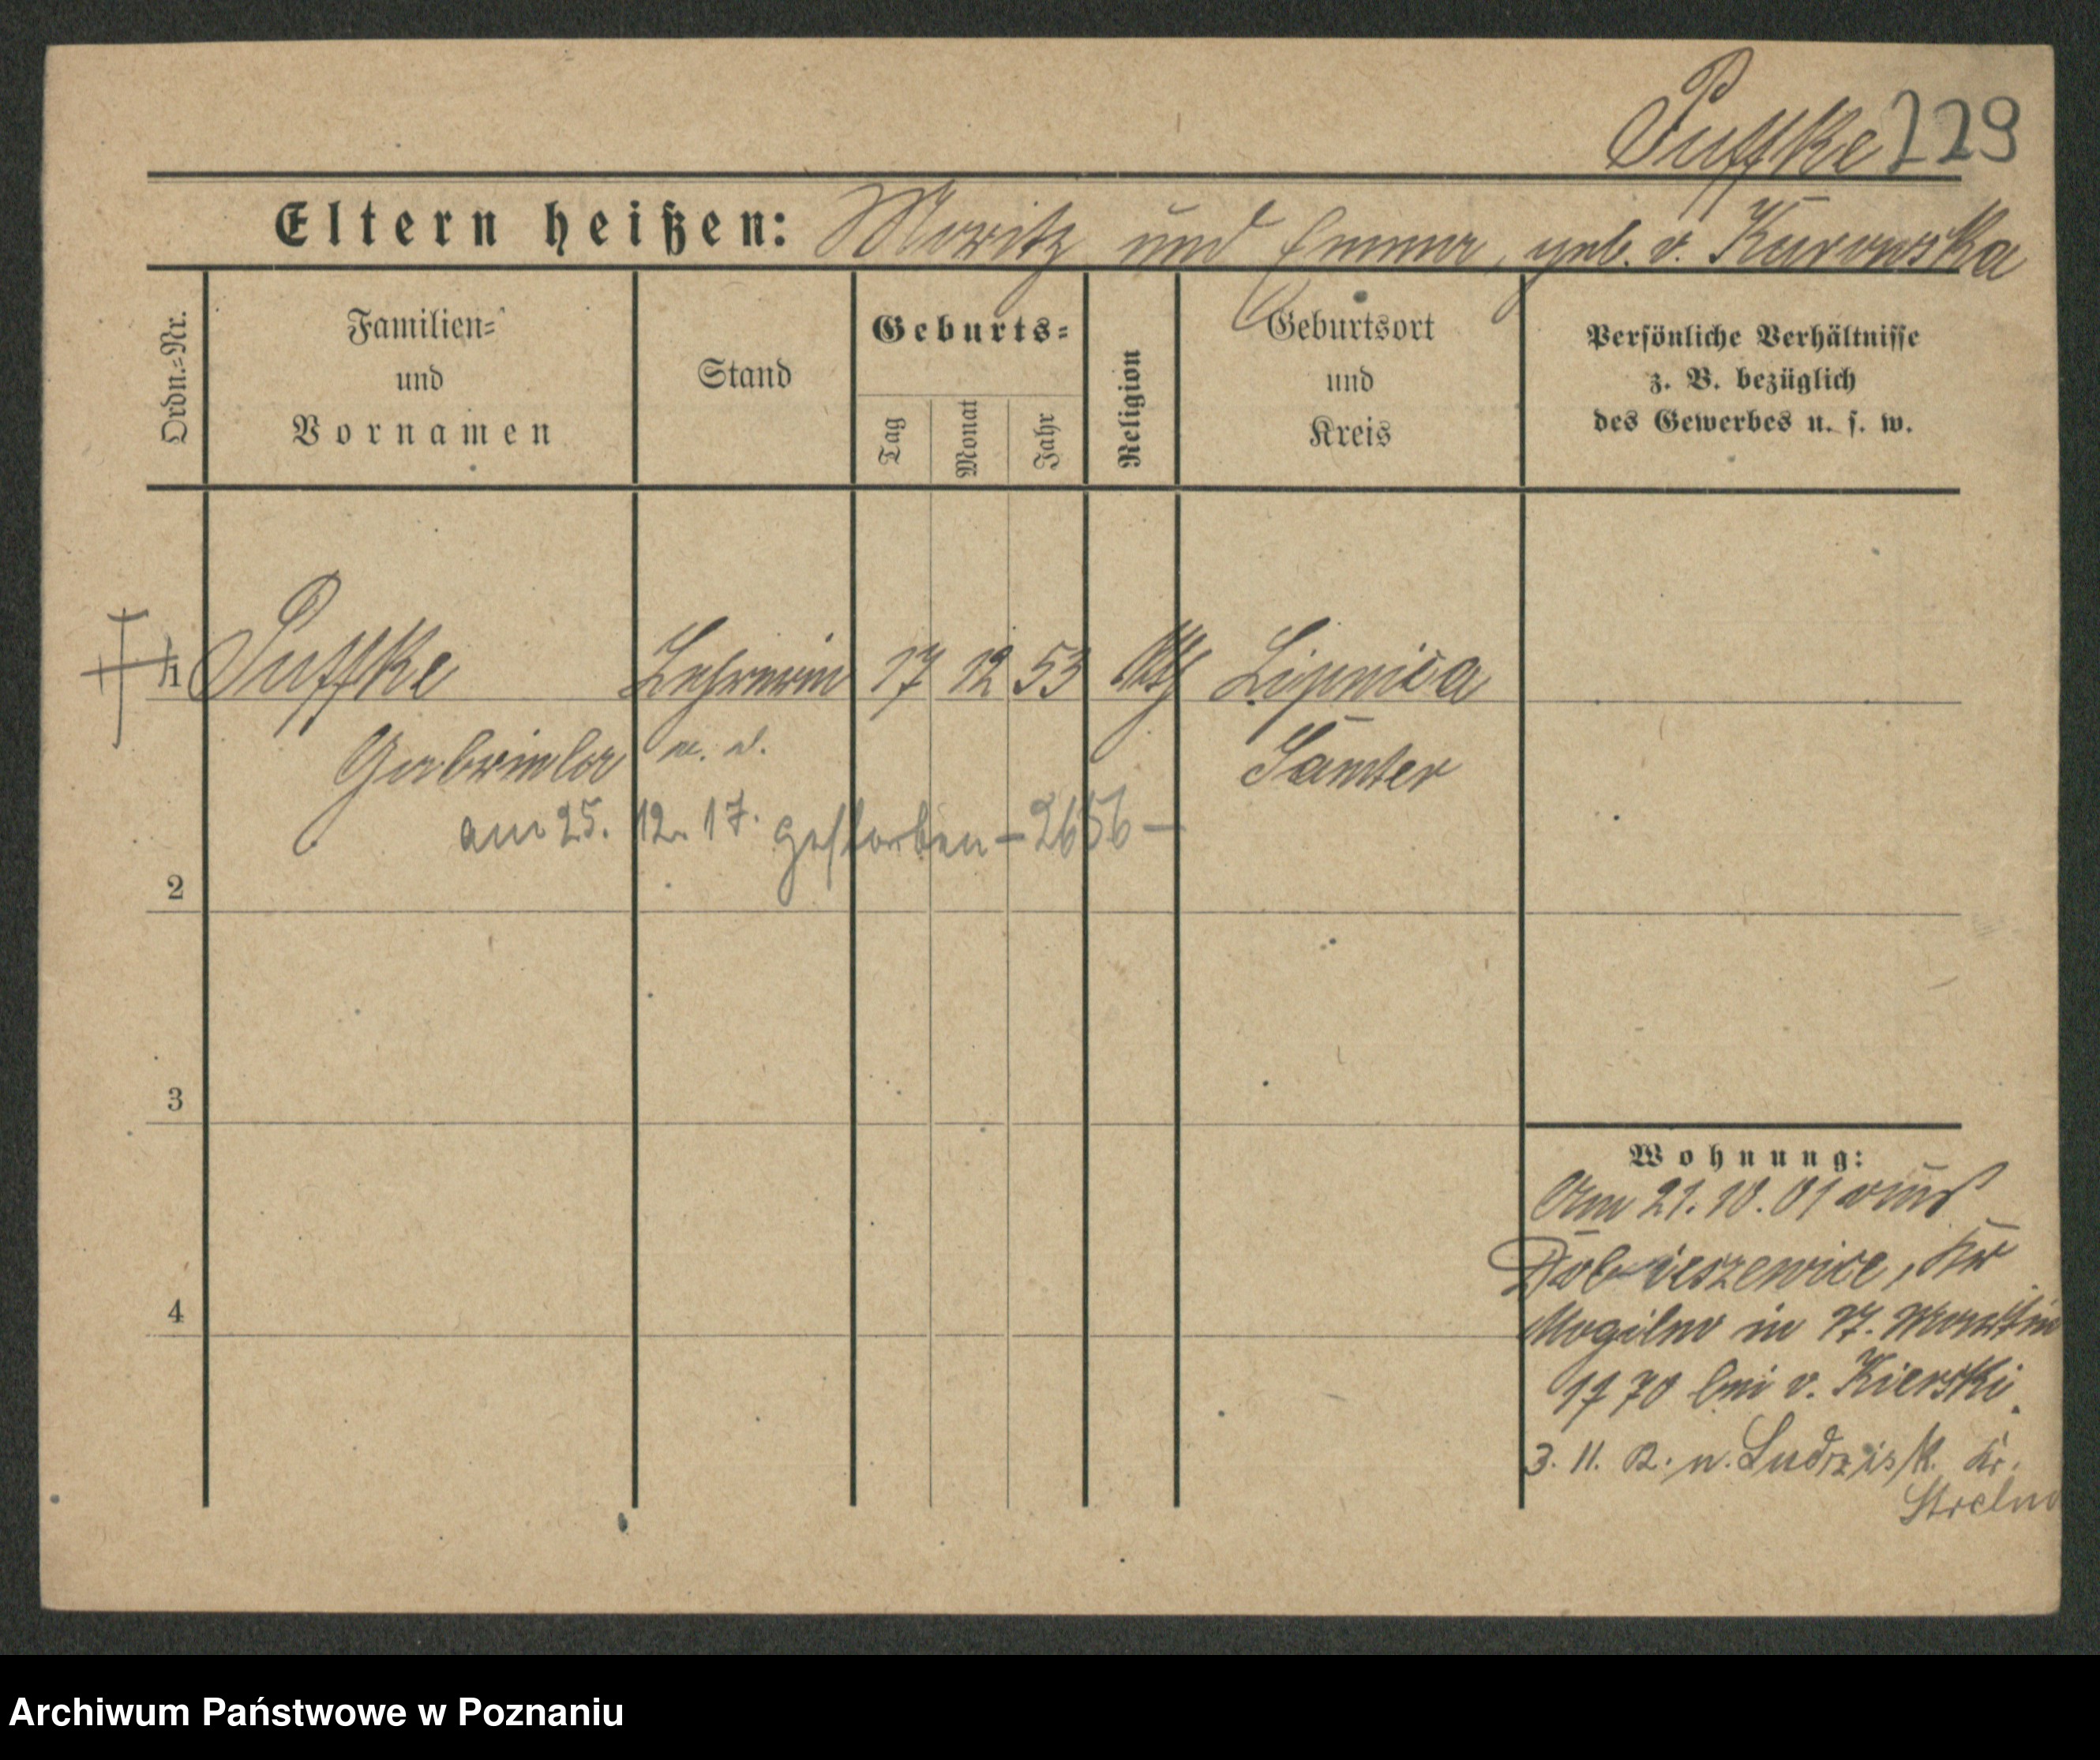 Puffke 229
Eltern heißen: Moritz und Emma, geb. v. Kurowska
Ordn.=Nr.
Familien=
und
Vornamen
Stand
Geburts=
Tag
Monat
Jahr
Religion
Geburtsort
und
Kreis
Persönliche Verhältnisse
z. B. bezüglich
des Gewerbes u. s. w.
1 Puffke Lehrerin 17 12 53 kth Lipnica
Gabriela Samter
am 25. 12. 17. gestorben – 2656 –
2
3
4
Wohnung:
Am 21.10.01 aus
Dobieszewice, Kr
Mogilno in 17. Martin
1770 bei v. Kierski.
3. 11. n. Ludzisk. Kr.
Strelno
Archiwum Państwowe w Poznaniu